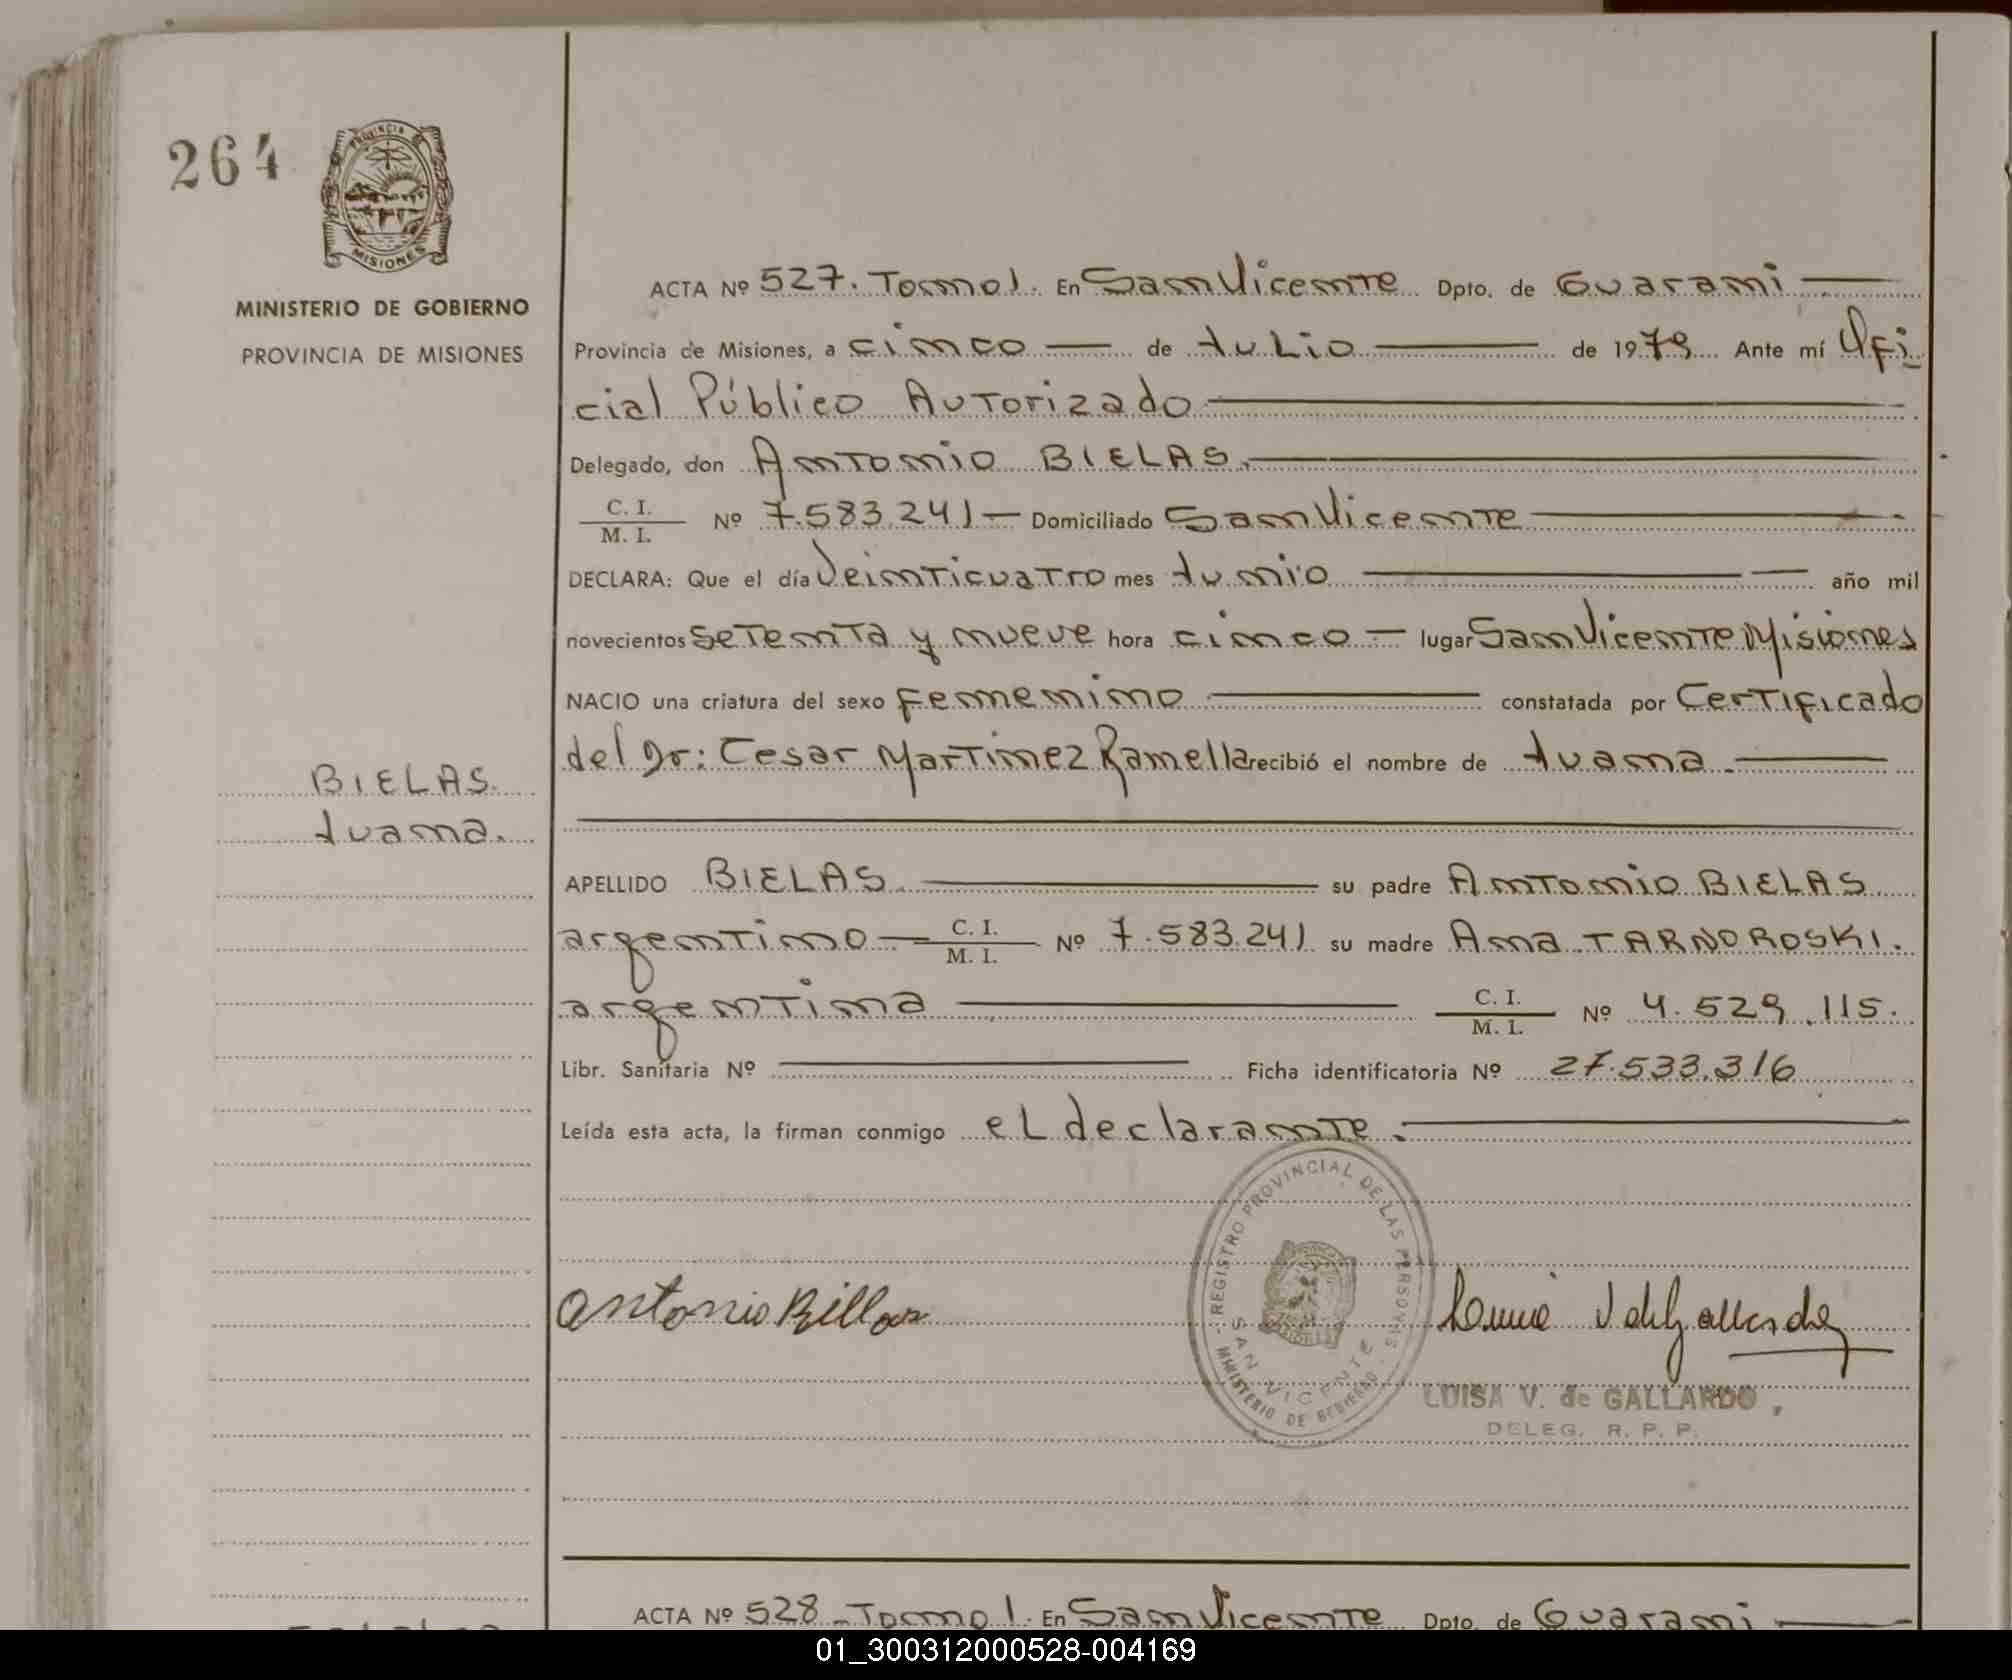 264
PROVINCIA DE
MISIONES
MINISTERIO DE GOBIERNO
PROVINCIA DE MISIONES
ACTA Nº 527. Tomo I. En San Vicente Dpto. de Guarani
Provincia de Misiones, a cinco de Julio de 1979 Ante mí Ofi
cial Público Autorizado
Delegado, don Antonio BIELAS.
C. I.
M. I. Nº 7.583.241 Domiciliado San Vicente
DECLARA: Que el día Veinticuatro mes Junio año mil
novecientos setenta y nueve hora cinco lugar San Vicente Misiones
NACIO una criatura del sexo femenino constatada por Certificado
del Dr: Cesar Martinez Ramella recibió el nombre de Juana.
BIELAS.
Juana.
APELLIDO BIELAS su padre Antonio BIELAS
argentino C. I. M. I. Nº 7.583.241 su madre Ana TARNOROSKI.
argentina C. I. M. I. Nº 4.529.115.
Libr. Sanitaria Nº Ficha identificatoria Nº 27.533.316
Leída esta acta, la firman conmigo el declarante.
REGISTRO PROVINCIAL DE LAS PERSONAS
SAN VICENTE
MINISTERIO DE GOBIERNO
Antonio Billas
LUISA V. de GALLARDO
DELEG. R. P. P.
ACTA Nº 528 Tomo I. En San Vicente Dpto. de Guarani
01_300312000528-004169